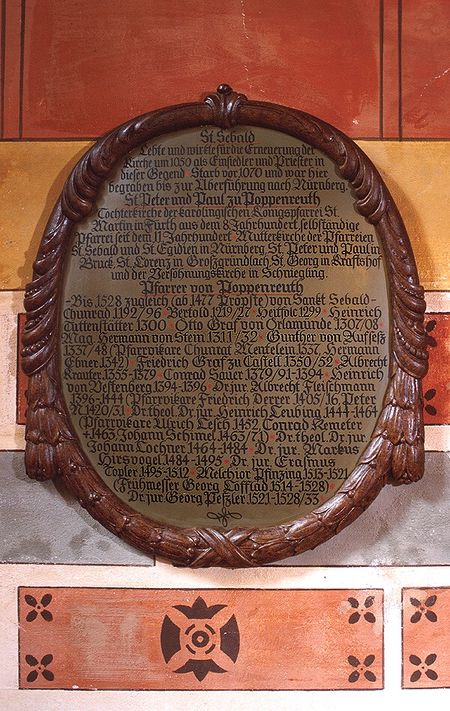 St. Sebald
Lebte und wirkte für die Erneuerung der
Kirche um 1050 als Einsiedler und Priester in
dieser Gegend. Starb vor 1070 und war hier
begraben bis zur Überführung nach Nürnberg.
St. Peter und Paul zu Poppenreuth
Tochterkirche der karolingischen Königspfarrei St.
Martin in Fürth aus dem 8. Jahrhundert, selbständige
Pfarrei seit dem 11. Jahrhundert. Mutterkirche der Pfarreien
St. Sebald und St. Egidien in Nürnberg, St. Peter und Paul in
Bruck, St. Lorenz in Großgründlach, St. Georg in Kraftshof
und der Versöhnungskirche in Schniegling.
Pfarrer von Poppenreuth
-Bis 1528 zugleich (ab 1477 Pröpste) von Sankt Sebald-
Chunrad 1192/96 Bertold 1219/27 Heitfolc 1299 Heinrich
Tuttenstatter 1300 Otto Graf von Orlamünde 1307/08
Mag. Hermann von Stein 1311/32 Gunther von Aufseß
1337/48 (Pfarrvikare Chunrad Mentelein 1337, Hermann
Ebner 1342) Friedrich Graf zu Castell 1350/52 Albrecht
Krauter 1355-1379 Conrad Sauer 1379/91-1394 Henrich
von Vestenberg 1394-1396 Dr. jur. Albrecht Fleischmann
1396-1444 (Pfarrvikare Friedrich Derrer 1405/16, Peter
N 1420/31) Dr. theol. Dr. jur. Heinrich Leubing 1444-1464
(Pfarrvikare Ulrich Lesch 1452, Conrad Kemeter
+1465, Johann Schimel 1465/71) Dr. theol. Dr. jur.
Johann Lochner 1464-1484 Dr. jur. Markus
Hirsvogel 1484-1495 Dr. jur. Erasmus
Topler 1495-1512 Melchior Pfinzing 1513-1521
(Frühmesser Georg Löfflad 1514-1528)
Dr. jur. Georg Peßzler 1521-1528/33